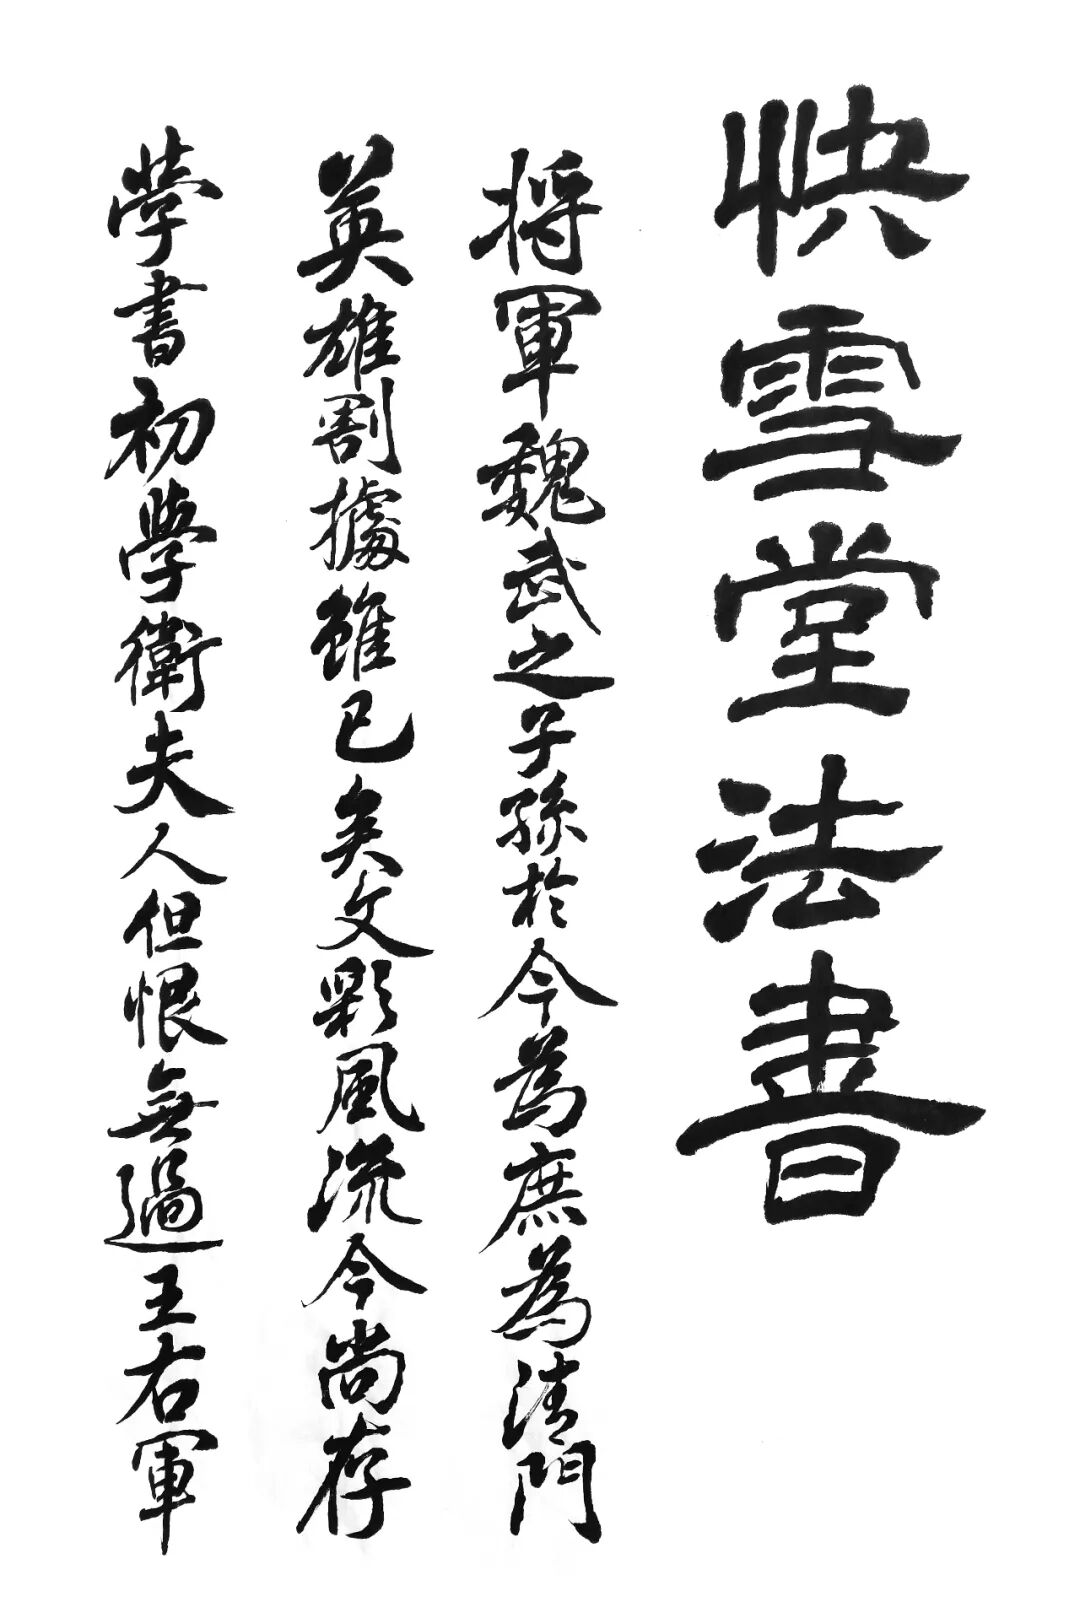 快雪堂法書
将軍魏武之子孫於今為庶為清門
英雄割據雖已矣文彩風流今尚存
學書初學衛夫人但恨無過王右軍